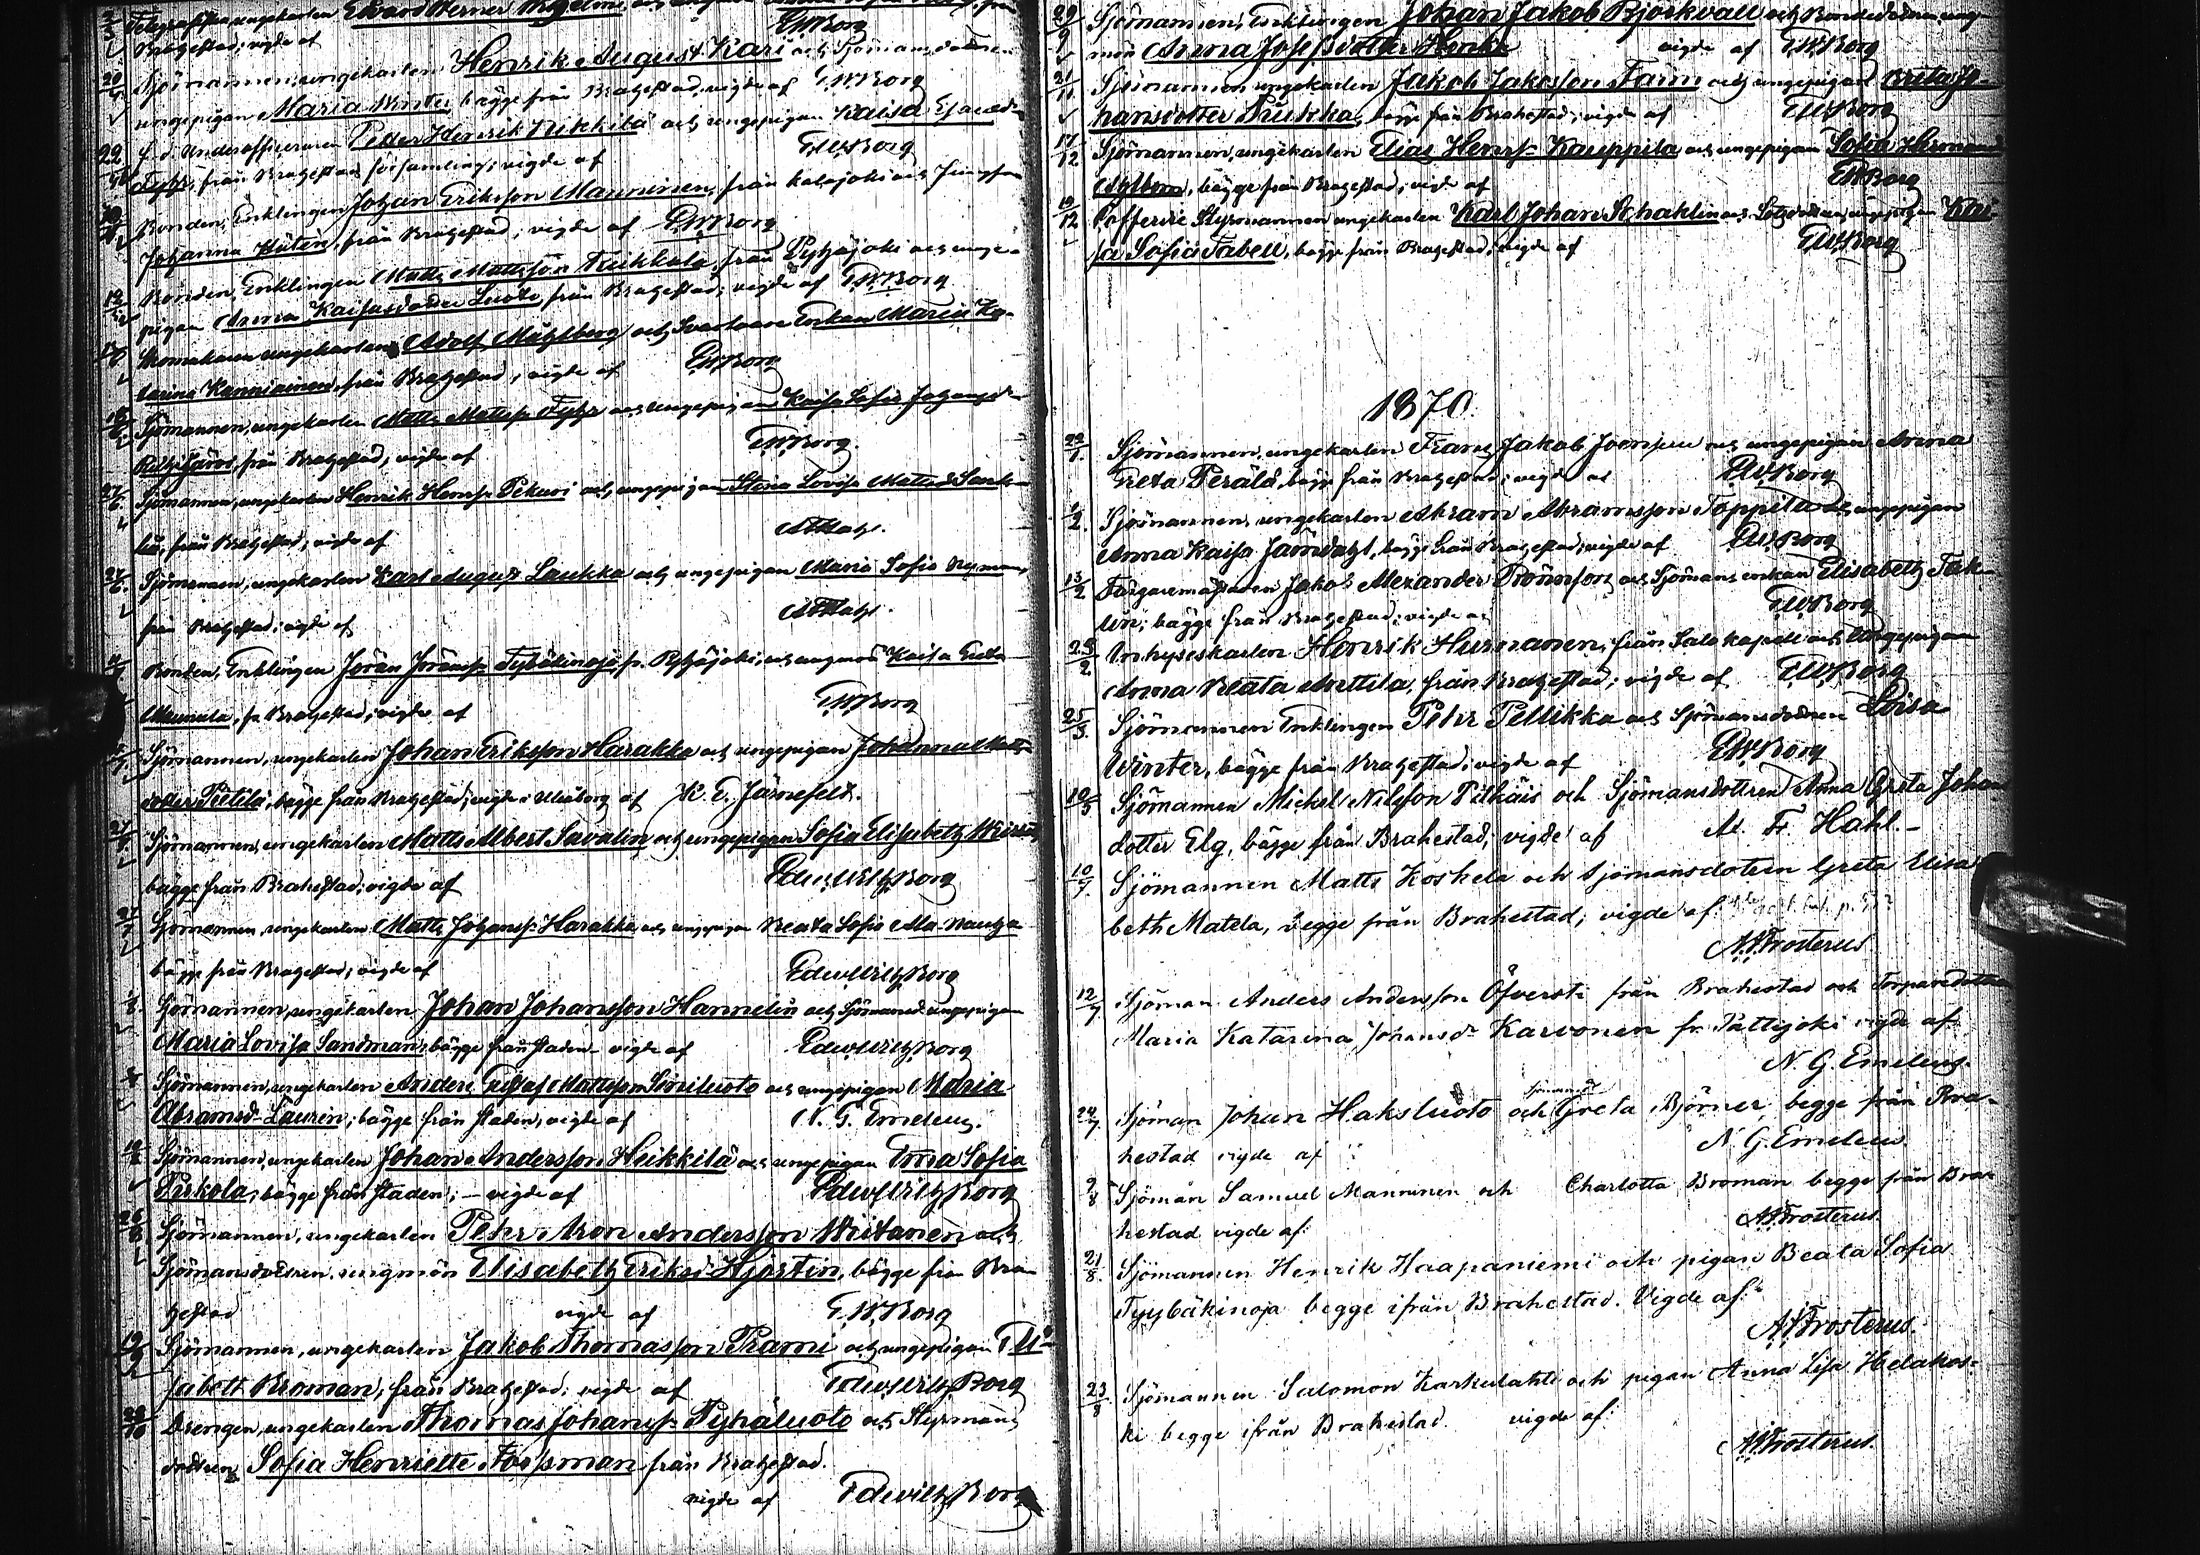 Telegrafisten ungekarlen Edvard Werner
Brahestad; vigde af EWBorg
20 Sjömannen, ungekarlen Henrik August Kari och Sjömansdottren
ungepigan Maria Winter, bägge från Brahestad, vigde af EWBorg
22 f. d. Underofficeraren Petter Henrik Nikkilä och ungepigan Kaisa
Fyhr, från Brahestads församling; vigde af EWBorg
Bonden, Enklingen Johan Eriksson Manninen, från Kalajoki och
Johanna Hulin, från Brahestad; vigde af EWBorg
Bonden, Enklingen Matts Mattsson Kukkala, från Pyhäjoki och unge-
pigan Anna Kaisa Luoto, från Brahestad; vigde af EWBorg
Skomakaren ungekarlen Adolf Måhlberg och Enkan Maria Ka-
tarina Kanniainen, från Brahestad; vigde af EWBorg
Sjömannen, ungekarlen Matts Mattss. Fyhr och ungepigan Kaisa Lisa Johansd.
från Brahestad, vigde af EWBorg.
27/6 Sjömannen, ungekarlen Henrik Henrss. Pekuri och ungepigan Stina Lovisa Mattsd.
från Brahestad; vigde af
27/6 Sjömannen, ungekarlen Karl August Laukka och ungepigan Maria Sofia Nyman,
från Brahestad; vigde af
Bonden, Enklingen Jöran Jöranss. Tyybäkinoja, fr. Pyhäjoki, och ungmön Kaisa Greta
Maunula, fr Brahestad; vigde af EWBorg
Sjömannen, ungekarlen Johan Eriksson Harakka och ungepigan Johanna Matts-
dotter Pietilä, bägge från Brahestad; vigde i Uleåborg af K. E. Järnefelt.
Sjömannen, ungekarlen Matts Albert Savalin och ungepigan Sofia Elisabeth
bägge från Brahestad; vigde af Edv. Wilh. Borg
27/7 Sjömannen, ungekarlen Matts Johanss. Harakka och ungepigan Beata Sofia Ala-Nautza
bägge från Brahestad; vigde af Edv Wilh Borg
Sjömannen, ungekarlen Johan Johansson Hannelin och Sjömansd ungepigan
Maria Lovisa Sandman, bägge från staden vigde af Edv Wilh Borg
Sjömannen, ungekarlen Anders Gustaf Mattsson Siniluoto och ungepigan Maria
Abramsd. Laurin, bägge från staden, vigde af N. G. Emeleus.
Sjömannen, ungekarlen Johan Andersson Heikkilä och ungepigan Anna Sofia
Piskola, bägge från staden; – vigde af Edv Wilh Borg
26/8 Sjömannen, ungekarlen Pehr Aron Andersson Wiitanen och
Sjömansdottren, ungmön Elisabeth Eriksd. Hjortin, bägge från Bra-
hestad vigde af E.W.Borg
19/9 Sjömannen, ungekarlen Jakob Thomasson Prami och ungepigan Eli-
sabeth Broman, från Brahestad; vigde af Edv Wilh Borg
Drengen, ungekarlen Thomas Johanss. Pyhäluoto och Styrmans
dottren Sofia Henriette Forsman från Brahestad.
vigde af Edv Wilh Borg
29/9 Sjömannen, Enklingen Johan Jakob Björkvall och Bondedottren ung-
mön Anna Josefsdotter Honka vigde af EWBorg
21/11 Sjömannen ungekarlen Jakob Jakobsson Farm och ungepigan Greta Jo-
hansdotter Prukka, bägge från Brahestad; vigde af EWBorg
17/12 Sjömannen, ungekarlen Elias Henrss. Kauppila och ungepigan Sofia Hermansd
bägge från Brahestad; vigde af EWBorg
19/12 Cofferdie Styrmannen ungekarlen Karl Johan Schahlin och ungepigan Kai-
sa Sofia Fabell, bägge från Brahestad; vigde af EWBorg
1870.
22/1. Sjömannen, ungekarlen Frans Jakob Joensuu och ungepigan Anna
Greta Perälä, bägge från Brahestad; vigde af EWBorg
Sjömannen, ungekarlen Abram Abramsson Toppila och ungepigan
Anna Kaisa Jamdahl, bägge från Brahestad; vigde af EWBorg
13/2 Färgaremästaren Jakob Alexander Trönnson och Sjömans enkan Elisabeth Fak-
lin; bägge från Brahestad; vigde af EWBorg
25/2 Inhyseskarlen Henrik Hurmanen, från Salo kapell och Ungepigan
Anna Beata Anttila, från Brahestad; vigde af EWBorg
25/3 Sjömannen Enklingen Pehr Pellikka och Sjömansdottren Loisa
Winter, bägge från Brahestad; vigde af EWBorg
10/5 Sjömannen Mickel Nilsson Pitkäis och Sjömansdottren Anna Greta Johans
dotter Elg, bägge från Brahestad; vigde af Al. Fr. Hahl.
10/7. Sjömannen Matts Koskela och Sjömansdottren Greta Elisa-
beth Matela, begge från Brahestad; vigde af
A.Frosterus
12/7 Sjöman Anders Andersson Öfversti från Brahestad och Torparedottren
Maria Katarina Johansdr Karvonen fr. Pattijoki vigde af
N. G. Emeleus.
24/7. Sjöman Johan Haksluoto och Sjömansdr Greta Björner begge från Bra-
hestad vigde af N. G. Emeleus
9/8 Sjöman Samuel Manninen och Charlotta Broman begge från Bra-
hestad vigde af: A.Frosterus.
21/8. Sjömannen Henrik Haapaniemi och pigan Beata Sofia
Tyybäkinoja begge ifrån Brahestad. Vigde af:
A.Frosterus.
23/8 Sjömannen Salomon Karkulahti och pigan Anna Lisa Helakos-
ki begge ifrån Brahestad. vigde af:
A.Frosterus.